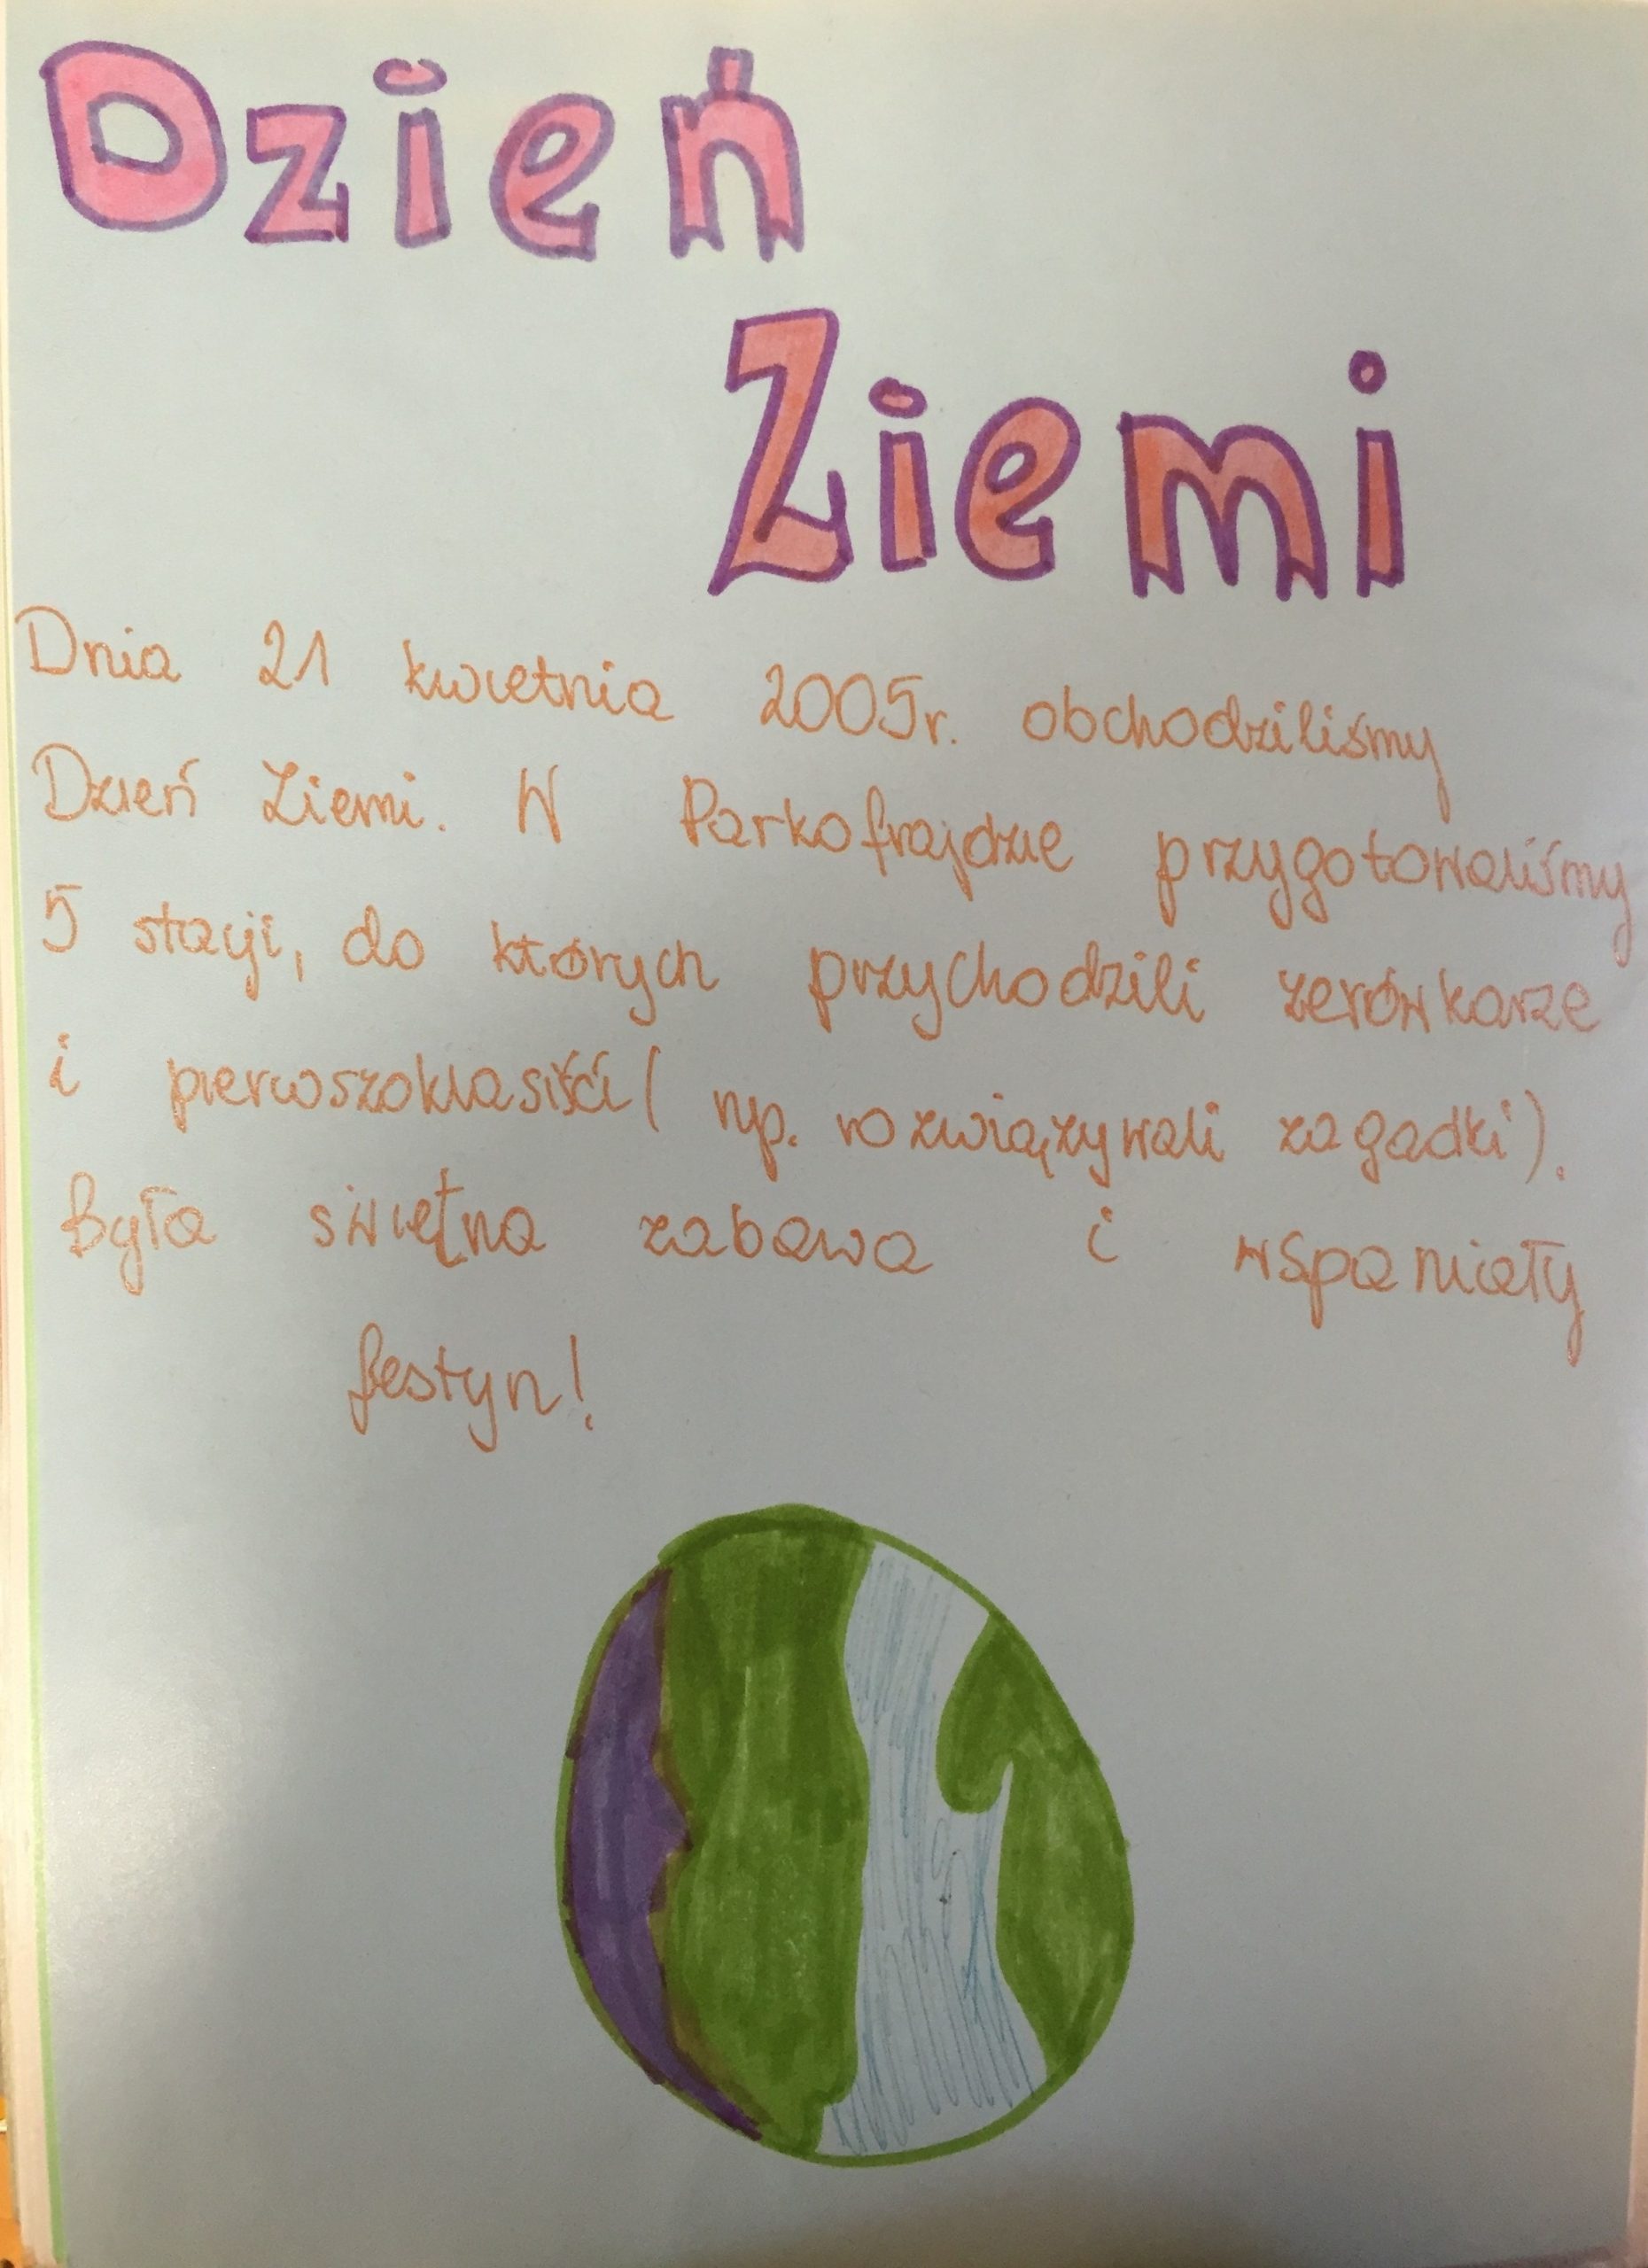 Dzień
Ziemi
Dnia 21 kwietnia 2005r. obchodziliśmy
Dzień Ziemi. W Parkofrajdzie przygotowaliśmy
5 stacji, do których przychodzili zerówkarze
i pierwszoklasiści ( np. rozwiązywali zagadki).
Była świętna zabawa i wspaniały
festyn!